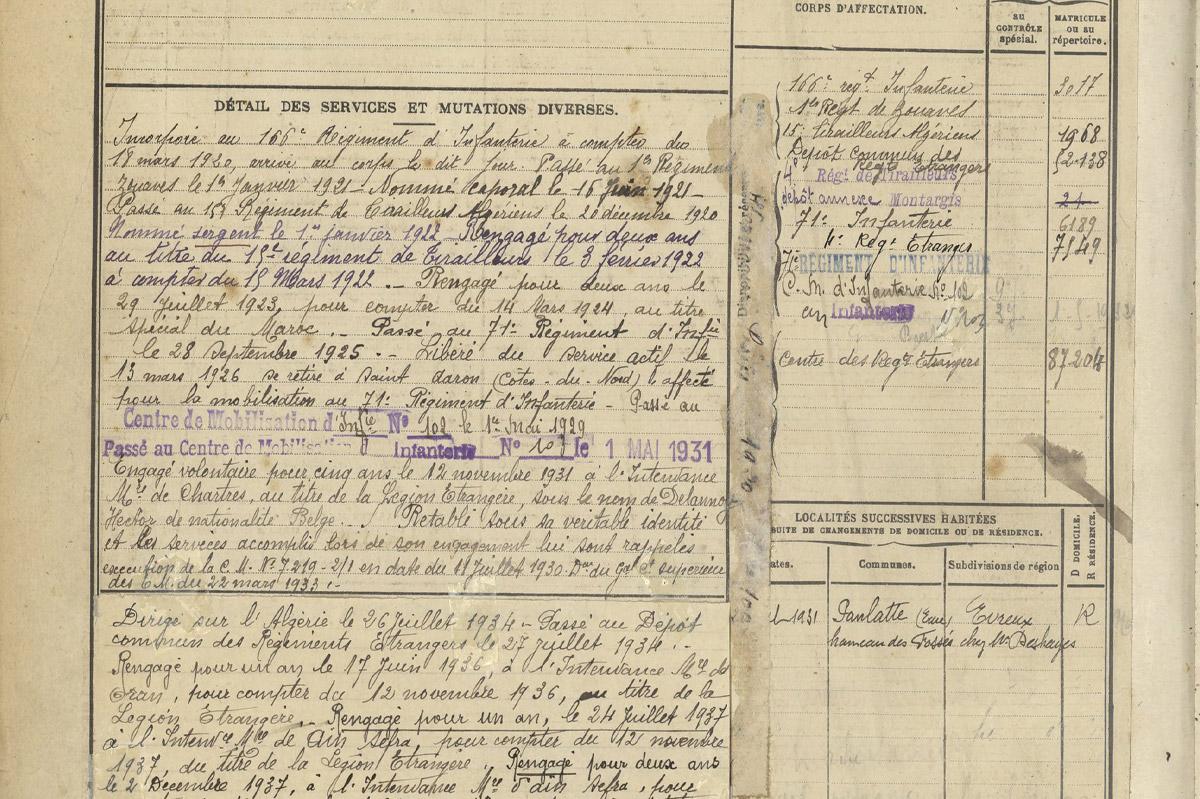 DÉTAIL DES SERVICES ET MUTATIONS DIVERSES.
Incorporé au 166e Régiment d'Infanterie à compter du
18 mars 1920, arrivé au corps le dit jour. Passé au 1er Régiment
Zouaves le 1er Janvier 1921 - Nommé caporal le 16 juin 1921 -
Passé au 15e Régiment de Tirailleurs Algériens le 20 décembre 1920
Nommé sergent le 1er janvier 1922 Rengagé pour deux ans
au titre du 15e régiment de Tirailleurs le 3 février 1922
à compter du 15 Mars 1922. - Rengagé pour deux ans le
29 Juillet 1923, pour compter du 14 Mars 1924, au titre
spécial du Maroc. - Passé au 71e Régiment d'Infie
le 28 Septembre 1925. - Libéré du service actif le
13 mars 1926 se retire à Saint (Côtes-du-Nord) affecté
pour la mobilisation au 71e Régiment d'Infanterie - Passé au
Centre de Mobilisation d'Infie No 102 le 1er Mai 1929
Passé au Centre de Mobilisation d'Infanterie No 107 le 1 MAI 1931
Engagé volontaire pour cinq ans le 12 novembre 1931 à l'Intendance
Mre de Chartres, au titre de la Légion Etrangère, sous le nom de Delannoy
Hector de nationalité Belge. - Rétabli sous sa véritable identité
et les services accomplis lors de son engagement lui sont rappelés
exécution de la C.M. No 7219-2/1 en date du 11 Juillet 1930. du Gal Ct supérieur
des T.M. du 22 mars 1933. -
Dirigé sur l'Algérie le 26 Juillet 1934 - Passé au Dépôt
commun des Régiments Etrangers le 27 juillet 1934. -
Rengagé pour un an le 17 Juin 1936, à l'Intendance Mre de
Oran, pour compter du 12 novembre 1936, au titre de la
Légion Etrangère. - Rengagé pour un an, le 24 Juillet 1937
à l'Intendce Mre de Ain Sefra, pour compter du 12 novembre
1937, du titre de la Légion Etrangère. Rengagé pour deux ans
le 2 Décembre 1937, à l'Intendance Mre d'Aïn Sefra, pour
CORPS D'AFFECTATION.
au CONTRÔLE spécial.
MATRICULE ou au répertoire.
166e régt Infanterie 3017
1er Régt de Zouaves
15e Tirailleurs Algériens 1968
Dépôt commun des Régts Etrangers 2438
4e Régt de Tirailleurs
dépôt annexe Montargis
71e Infanterie 6189
4e Régt Etranger 7549
71e RÉGIMENT D'INFANTERIE
C.M. d'Infanterie No 102
Infanterie
Centre des Régts Etrangers 87204
LOCALITÉS SUCCESSIVES HABITÉES
SUITE DE CHANGEMENTS DE DOMICILE OU DE RÉSIDENCE.
ates.
Communes.
Subdivisions de région
D DOMICILE.
R RÉSIDENCE.
1931 (Eure) Evreux R
hameau des Fosses chez Mr Deshayes